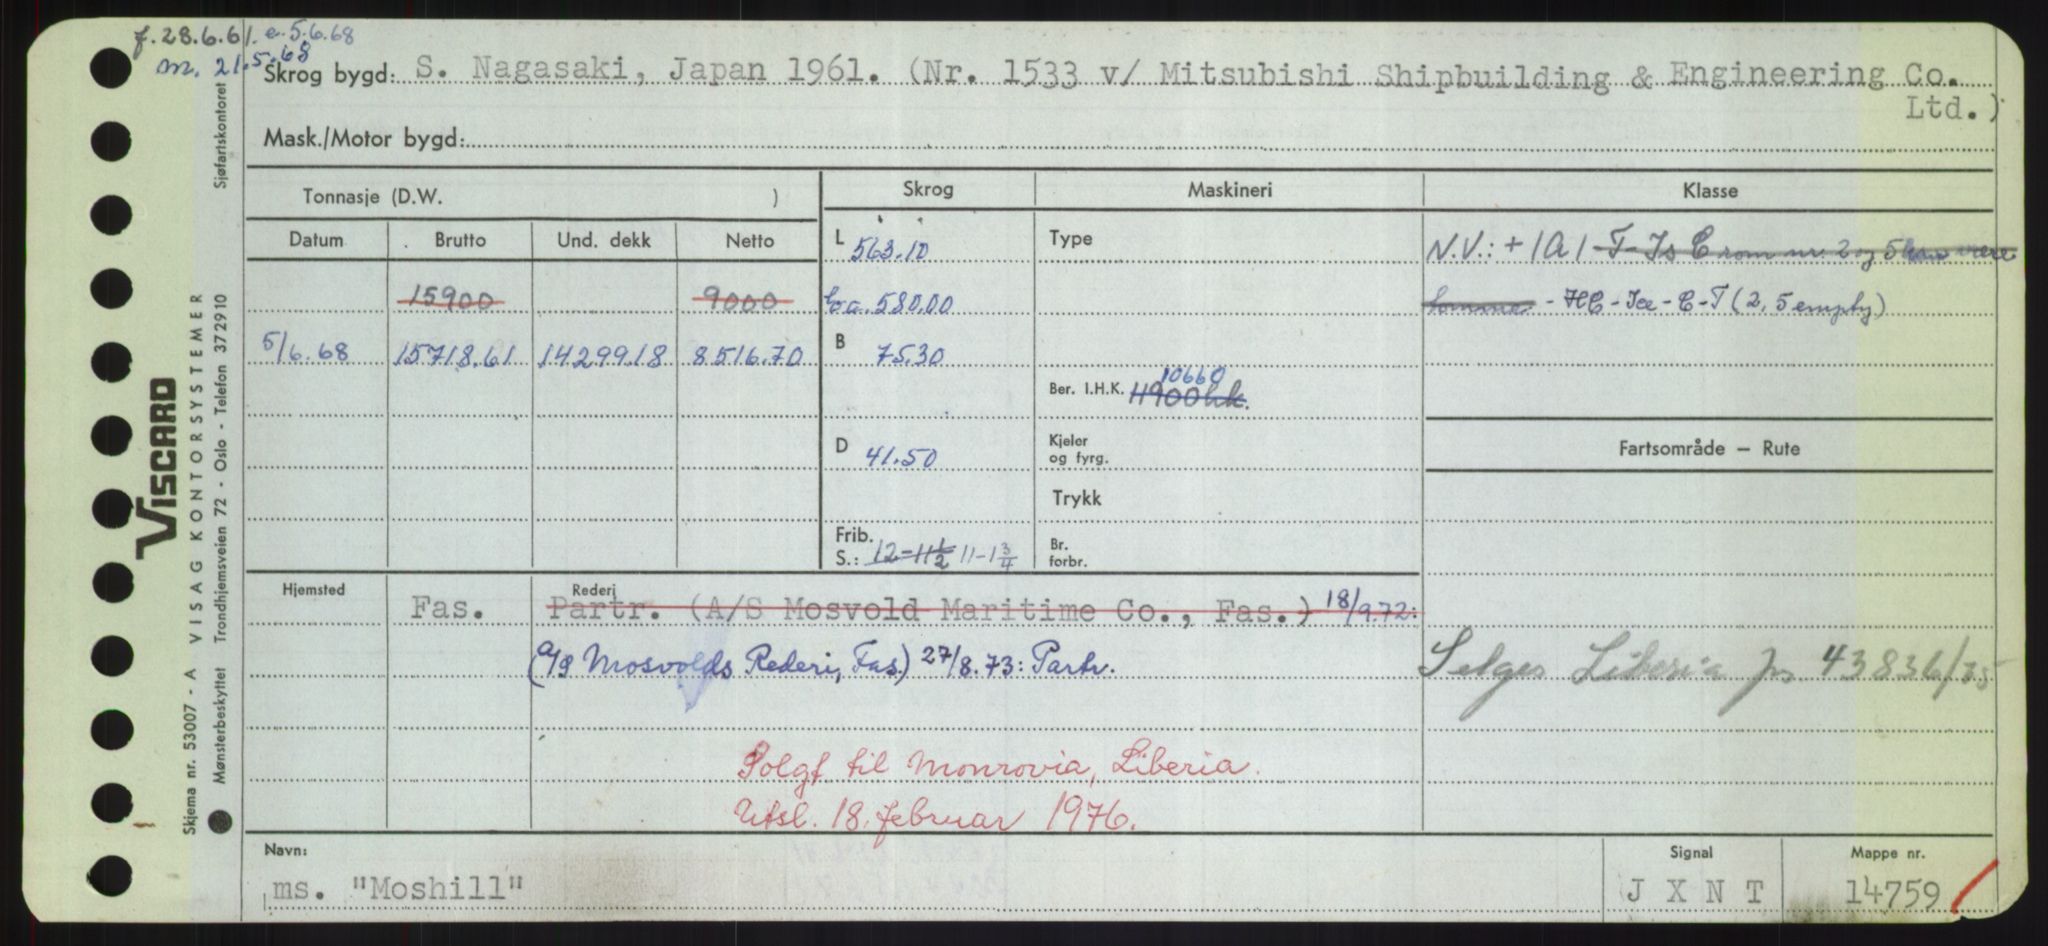 f. 28.6.61. e. 5.6.68
m. 21.5.68
Skrog bygd: S. Nagasaki, Japan 1961. (Nr. 1533 v/ Mitsubishi Shipbuilding & Engineering Co.
Ltd.)
Mask./Motor bygd:
Tonnasje (D.W. )
Skrog
Maskineri
Klasse
Datum
Brutto
Und. dekk
Netto
L 563.10
Type
N.V.: + 1A1 - T - Is C rom nr. 2 og 5 kan være
15900
9000
ca. 580.00
tomme - HC - Ice - C - T (2, 5 empty)
5/6.68 15718.61 14299.18 8516.70
B 75.30
10660
Ber. I.H.K. 11900 hk.
D 41.50
Kjeler
og fyrg.
Fartsområde — Rute
Trykk
Frib.
S.: 12-11½ 11-1¾
Br.
forbr.
Hjemsted
Rederi
Fas. Partr. (A/S Mosvold Maritime Co., Fas.) 18/9.72:
(A/S Mosvolds Rederi, Fas.) 27/8.73: Partr.
Selges Liberia js. 43836/75
Solgt til Monrovia, Liberia.
Utsl. 18. februar 1976.
Navn:
Signal
Mappe nr.
ms. "Moshill"
J X N T
14759
VISCARD
Skjema nr. 53007 - A VISAG KONTORSYSTEMER
Mønsterbeskyttet Trondhjemsveien 72 - Oslo - Telefon 372910 Sjøfartskontoret